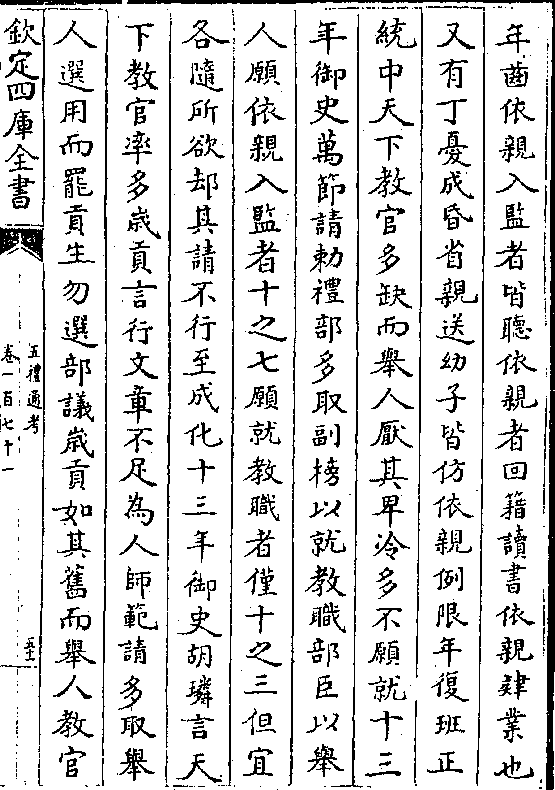 年齒依親入監者皆聽依親者回籍讀書依親肄業也
又有丁憂成昏省親送幼子皆仿依親例限年復班正
統中天下教官多缺而舉人厭其卑冷多不願就十三
年御史萬節請勅禮部多取副榜以就教職部臣以舉
人願依親入監者十之七願就教職者僅十之三但宜
各隨所欲却其請不行至成化十三年御史胡璘言天
下教官率多歲貢言行文章不足為人師範請多取舉
人選用而罷貢生勿選部議歲貢如其舊而舉人教官
欽定四庫全書
五禮通考
卷一百七十一